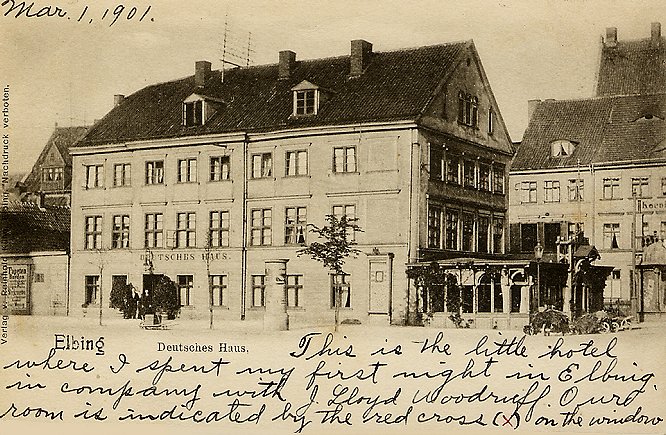 Mar. 1, 1901.
DEUTSCHES HAUS.
Nachdruck verboten.
Elbing
Deutsches Haus.
This is the little hotel
where I spent my first night in Elbing
in company with J. Lloyd Woodruff Our
room is indicated by the red cross (X) on the window